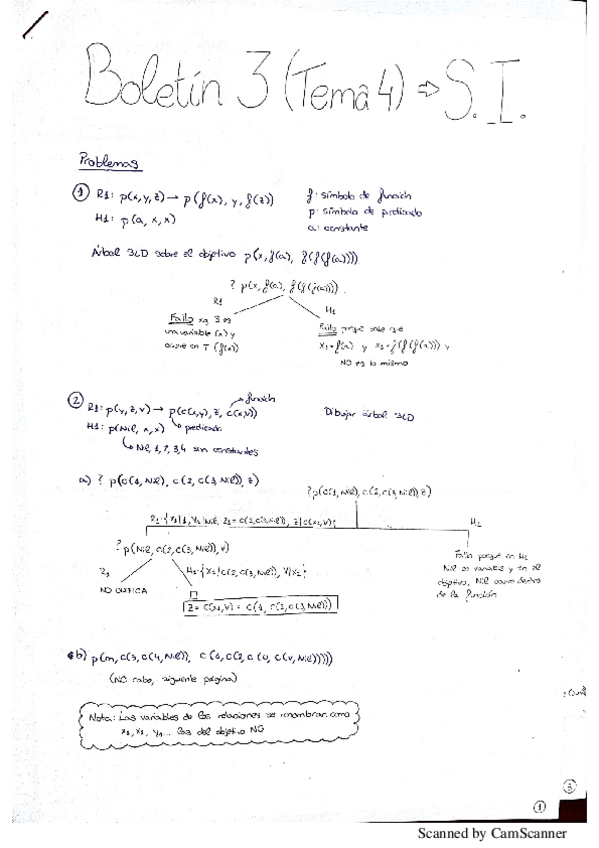 Boletín 3 (Tema 4) ⇒ S.I.
Problemas
① R1: p(x,y,z) → p(f(x), y, f(z))
f: símbolo de función
H1: p(a, x, x)
p: símbolo de predicado
a: constante
Árbol SLD sobre el objetivo p(x, f(a), f(f(f(a))))
? p(x, f(a), f(f(f(a))))
R1
H1
Falla xq S es
una variable (x) y
ocurre en T (f(x))
Falla porque
x1=f(a) y x1=f(f(f(a))) y
NO es lo mismo
② R1: p(y, z, v) → p(c(x,y), z, c(x,v))
función
Dibujar árbol SLD
H1: p(Nil, x, x)
predicado
Nil, 1, 2, 3, 4 son constantes
a) ? p(c(1, Nil), c(2, c(3, Nil)), z)
? p(c(1, Nil), c(2, c(3, Nil)), z)
H1
? p(Nil, c(2, c(3, Nil)), v)
H1 {x2|c(2, c(3, Nil)), v|x2}
NO UNIFICA
□
z = c(x1, v) = c(1, c(2, c(3, Nil)))
Falla porque en H1
Nil es variable y en el
objetivo, Nil ocurre dentro
de la función
b) p(m, c(3, c(4, Nil)), c(1, c(2, c(u, c(v, Nil)))))
(NO cabe, siguiente página)
Nota: Las variables de las relaciones se renombran como
x1, x2, y1... las del objetivo NO
3
1
Scanned by CamScanner